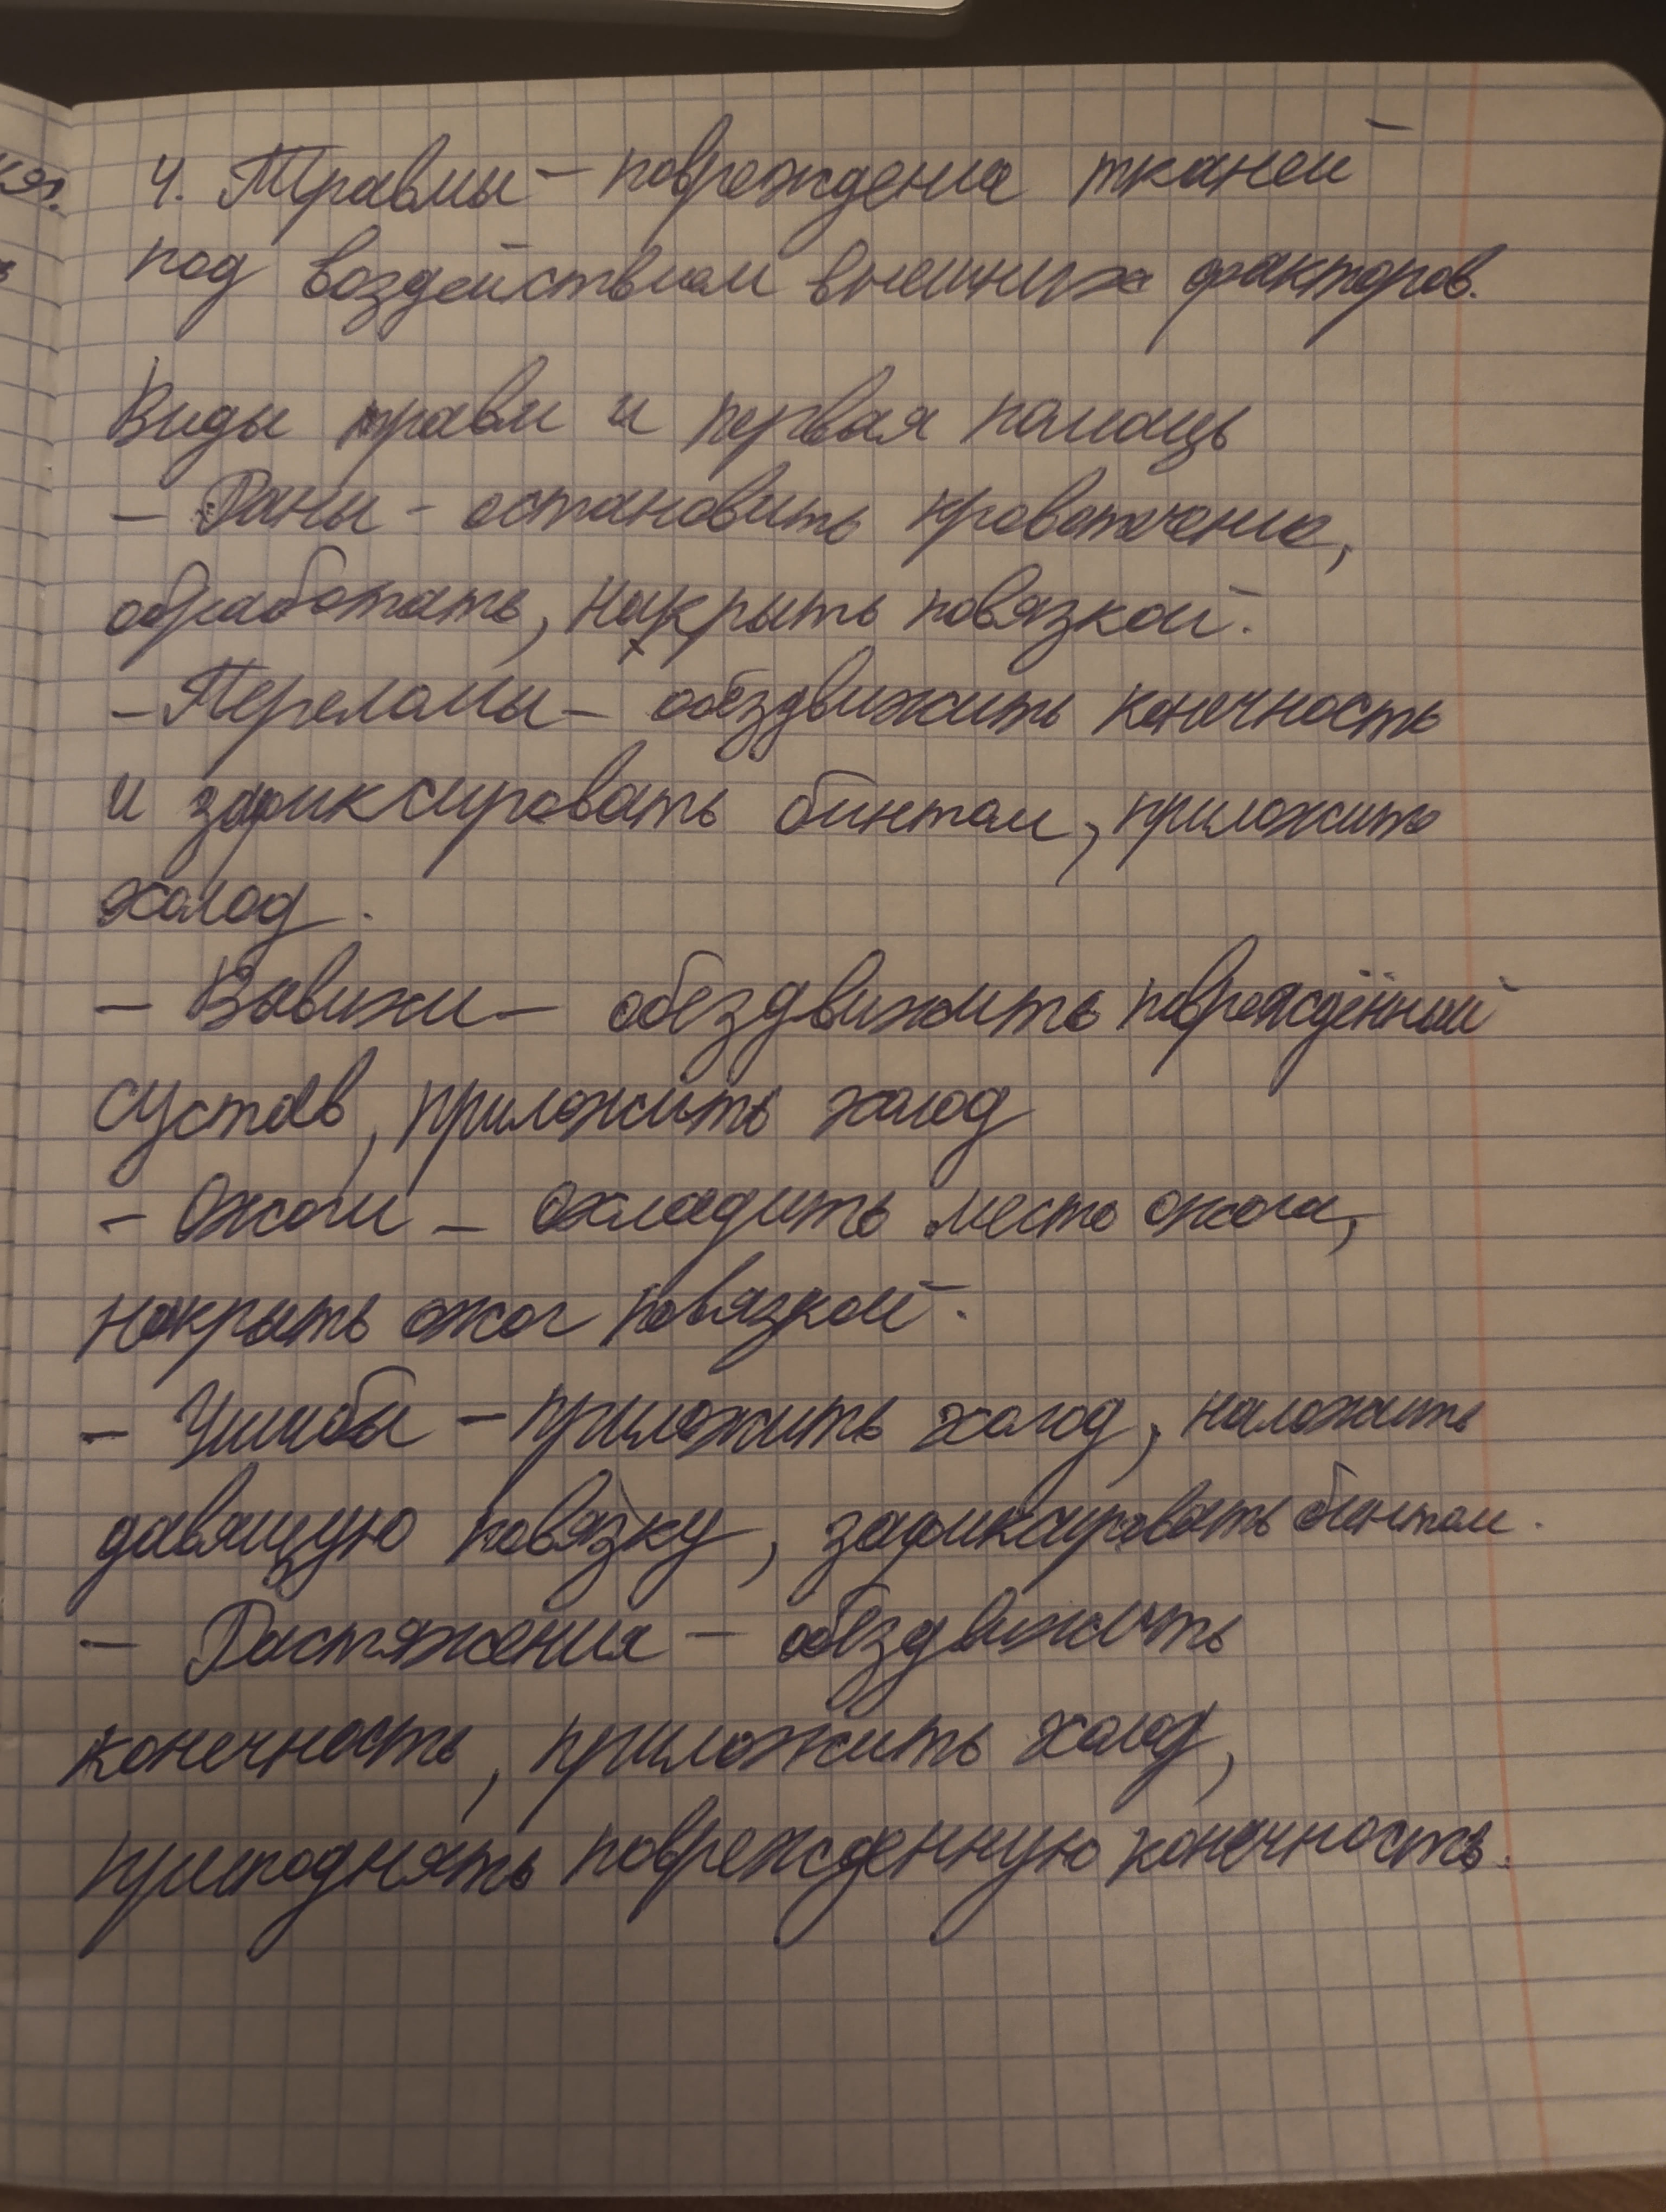 4. Травмы - повреждения тканей
под воздействием внешних факторов.
Виды травм и первая помощь
- Раны - остановить кровотечение,
обработать, накрыть повязкой.
- Переломы - обездвижить конечность
и зафиксировать бинтом, приложить
холод.
- Вывихи - обездвижить повреждённый
сустав, приложить холод
- Ожоги - охладить место ожога,
накрыть ожог повязкой.
- Ушибы - приложить холод, наложить
давящую повязку, зафиксировать бинтом.
- Растяжения - обездвижить
конечность, приложить холод,
приподнять поврежденную конечность.